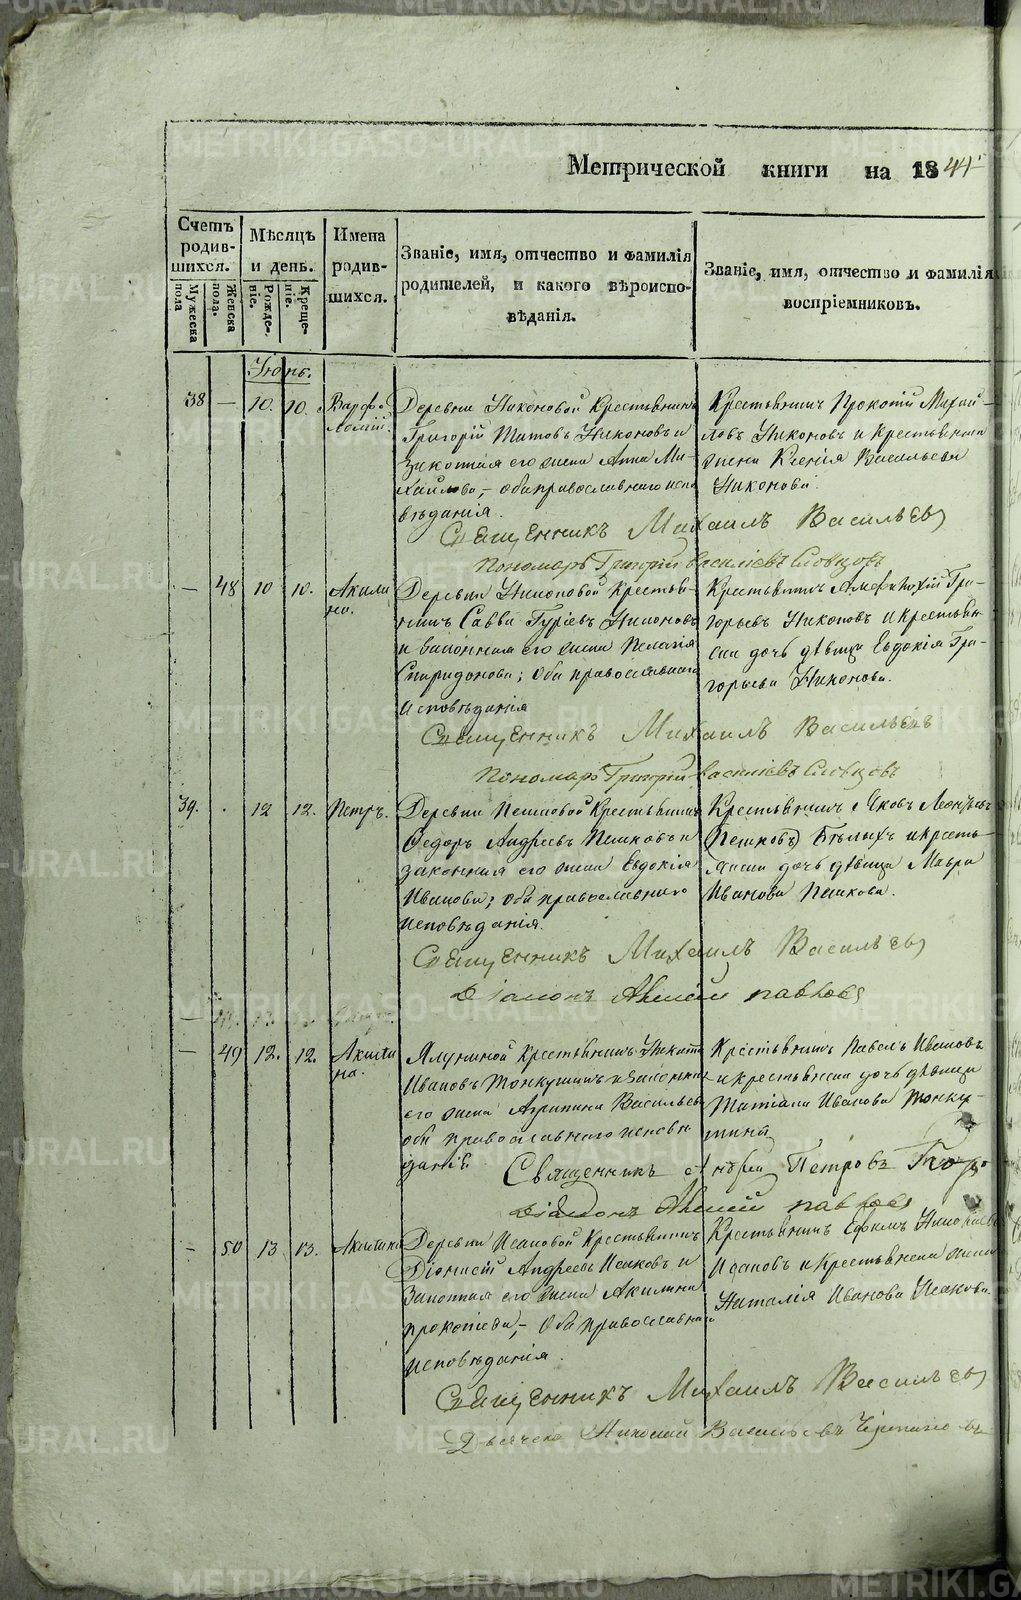 Метрической книги на 1844
Счетъ родившихся.
Мужеска пола
Женска пола.
Мѣсяцъ и день.
Рожденіе.
Крещеніе.
Имена родившихся.
Званіе, имя, отчество и фамилія
родителей, и какого вѣроиспо-
вѣданія.
Званіе, имя, отчество и фамилія
воспріемниковъ.
Іюнь.
38 — 10. 10. Варфо-
ломій.
Деревни Никоновой Крестьянинъ
Григорій Титовъ Никоновъ и
законная его жена Анна Ми-
хайлова, — оба православнаго испо
вѣданія.
Крестьянинъ Прокопій Михай-
ловъ Никоновъ и крестьянская
жена Ксенія Васильева
Никонова.
Священникъ Михаилъ Васильевъ
Пономарь Григорій Василіевъ Словцовъ
— 48 10 10. Акили
на.
Деревни Никоновой Крестья-
нинъ Савва Гуріевъ Никоновъ
и законная его жена Пелагія
Спиридонова; оба православнаго
исповѣданія
Крестьянинъ Гри-
горьевъ Никоновъ и крестьян-
ская дочь дѣвица Евдокія Гри-
горьева Никонова.
Священникъ Михаилъ Васильевъ
Пономарь Григорій Василіевъ Словцовъ
39. . 12 12. Петръ.
Деревни Пешковой Крестьянинъ
Ѳедоръ Андреевъ Пешковъ и
законная его жена Евдокія
Иванова; оба православнаго
исповѣданія.
Крестьянинъ Яковъ Леонтьевъ
(Пешковъ) Бѣлыхъ и кресть-
янская дочь дѣвица Мавра
Иванова Пешкова.
Священникъ Михаилъ Васильевъ
Діаконъ Павловъ
— 49 12. 12. Акили
на.
Ялуниной Крестьянинъ Никита
Ивановъ Тонкушинъ и законная
его жена Агрипина Васильева
оба православнаго исповѣ
данія
Крестьянинъ Павелъ Ивановъ
и крестьянская дочь дѣвица
Татіана Иванова Тонку-
шина
Священникъ Андрей Петровъ
Діаконъ Павловъ
— 50 13 13. Акилина
Деревни Исаковой Крестьянинъ
Діонисій Андреевъ Исаковъ и
Законная его жена Акилина
Прокопіева, — Оба православнаго
исповѣданія.
Крестьянинъ Ефимъ
Исаковъ и Крестьянская жена
Наталія Иванова Исакова.
Священникъ Михаилъ Васильевъ
Дьячекъ Николай Васильевъ
METRIKI.GASO-URAL.RU